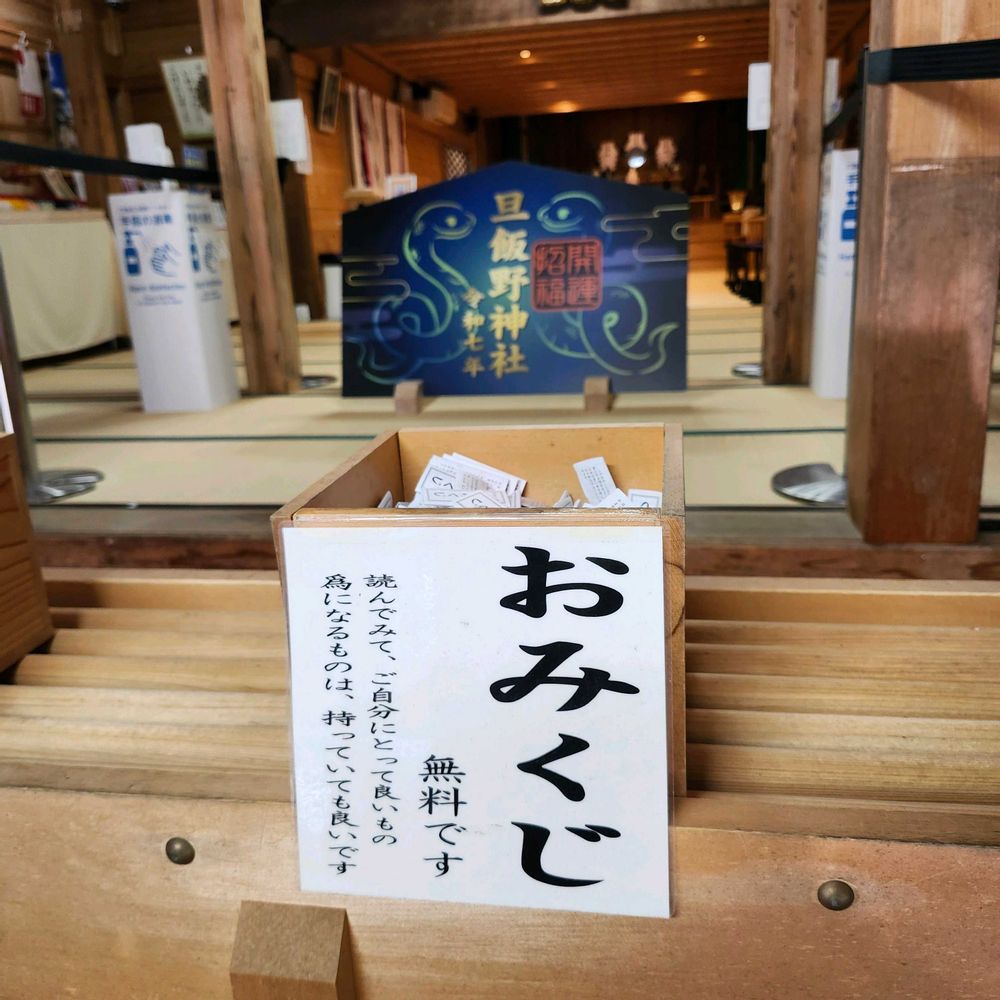 旦飯野神社
令和七年
開運
招福
おみくじ
無料です
読んでみて、ご自分にとって良いもの
為になるものは、持っていても良いです